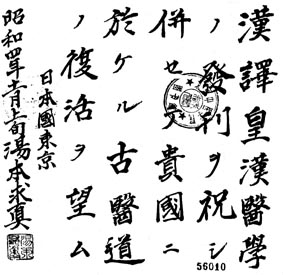 漢譯皇漢醫學
ノ發刊ヲ祝シ
併セテ貴國ニ
於ケル古醫道
ノ復活ヲ望ム
日本國東京
昭和四年十一月上旬湯本求眞
56010